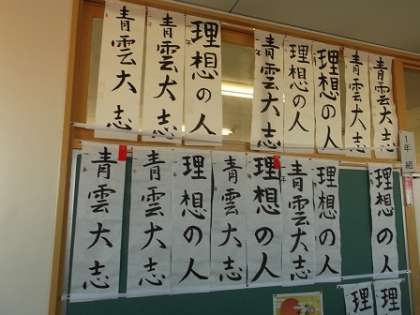 青雲大志
青雲大志
理想の人
青雲大志
理想の人
理想の人
青雲大志
青雲大志
青雲大志
青雲大志
理想の人
青雲大志
理想の人
青雲大志
理想の人
理想の人
理
理